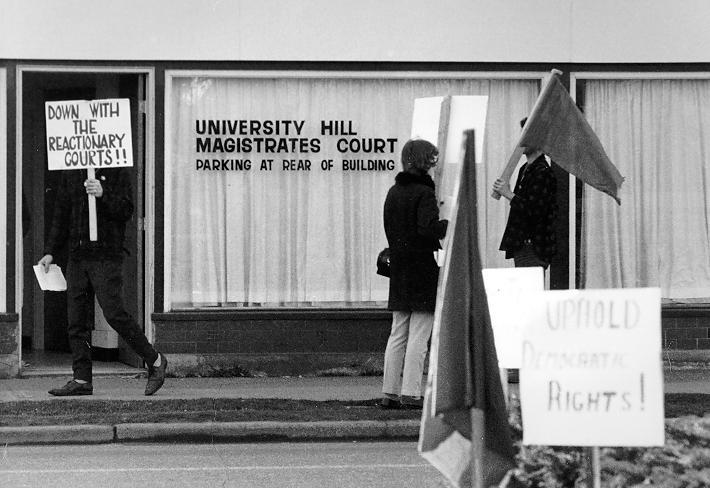 DOWN WITH
THE
REACTIONARY
COURTS!!
UNIVERSITY HILL
MAGISTRATES COURT
PARKING AT REAR OF BUILDING
UPHOLD
DEMOCRATIC
RIGHTS!